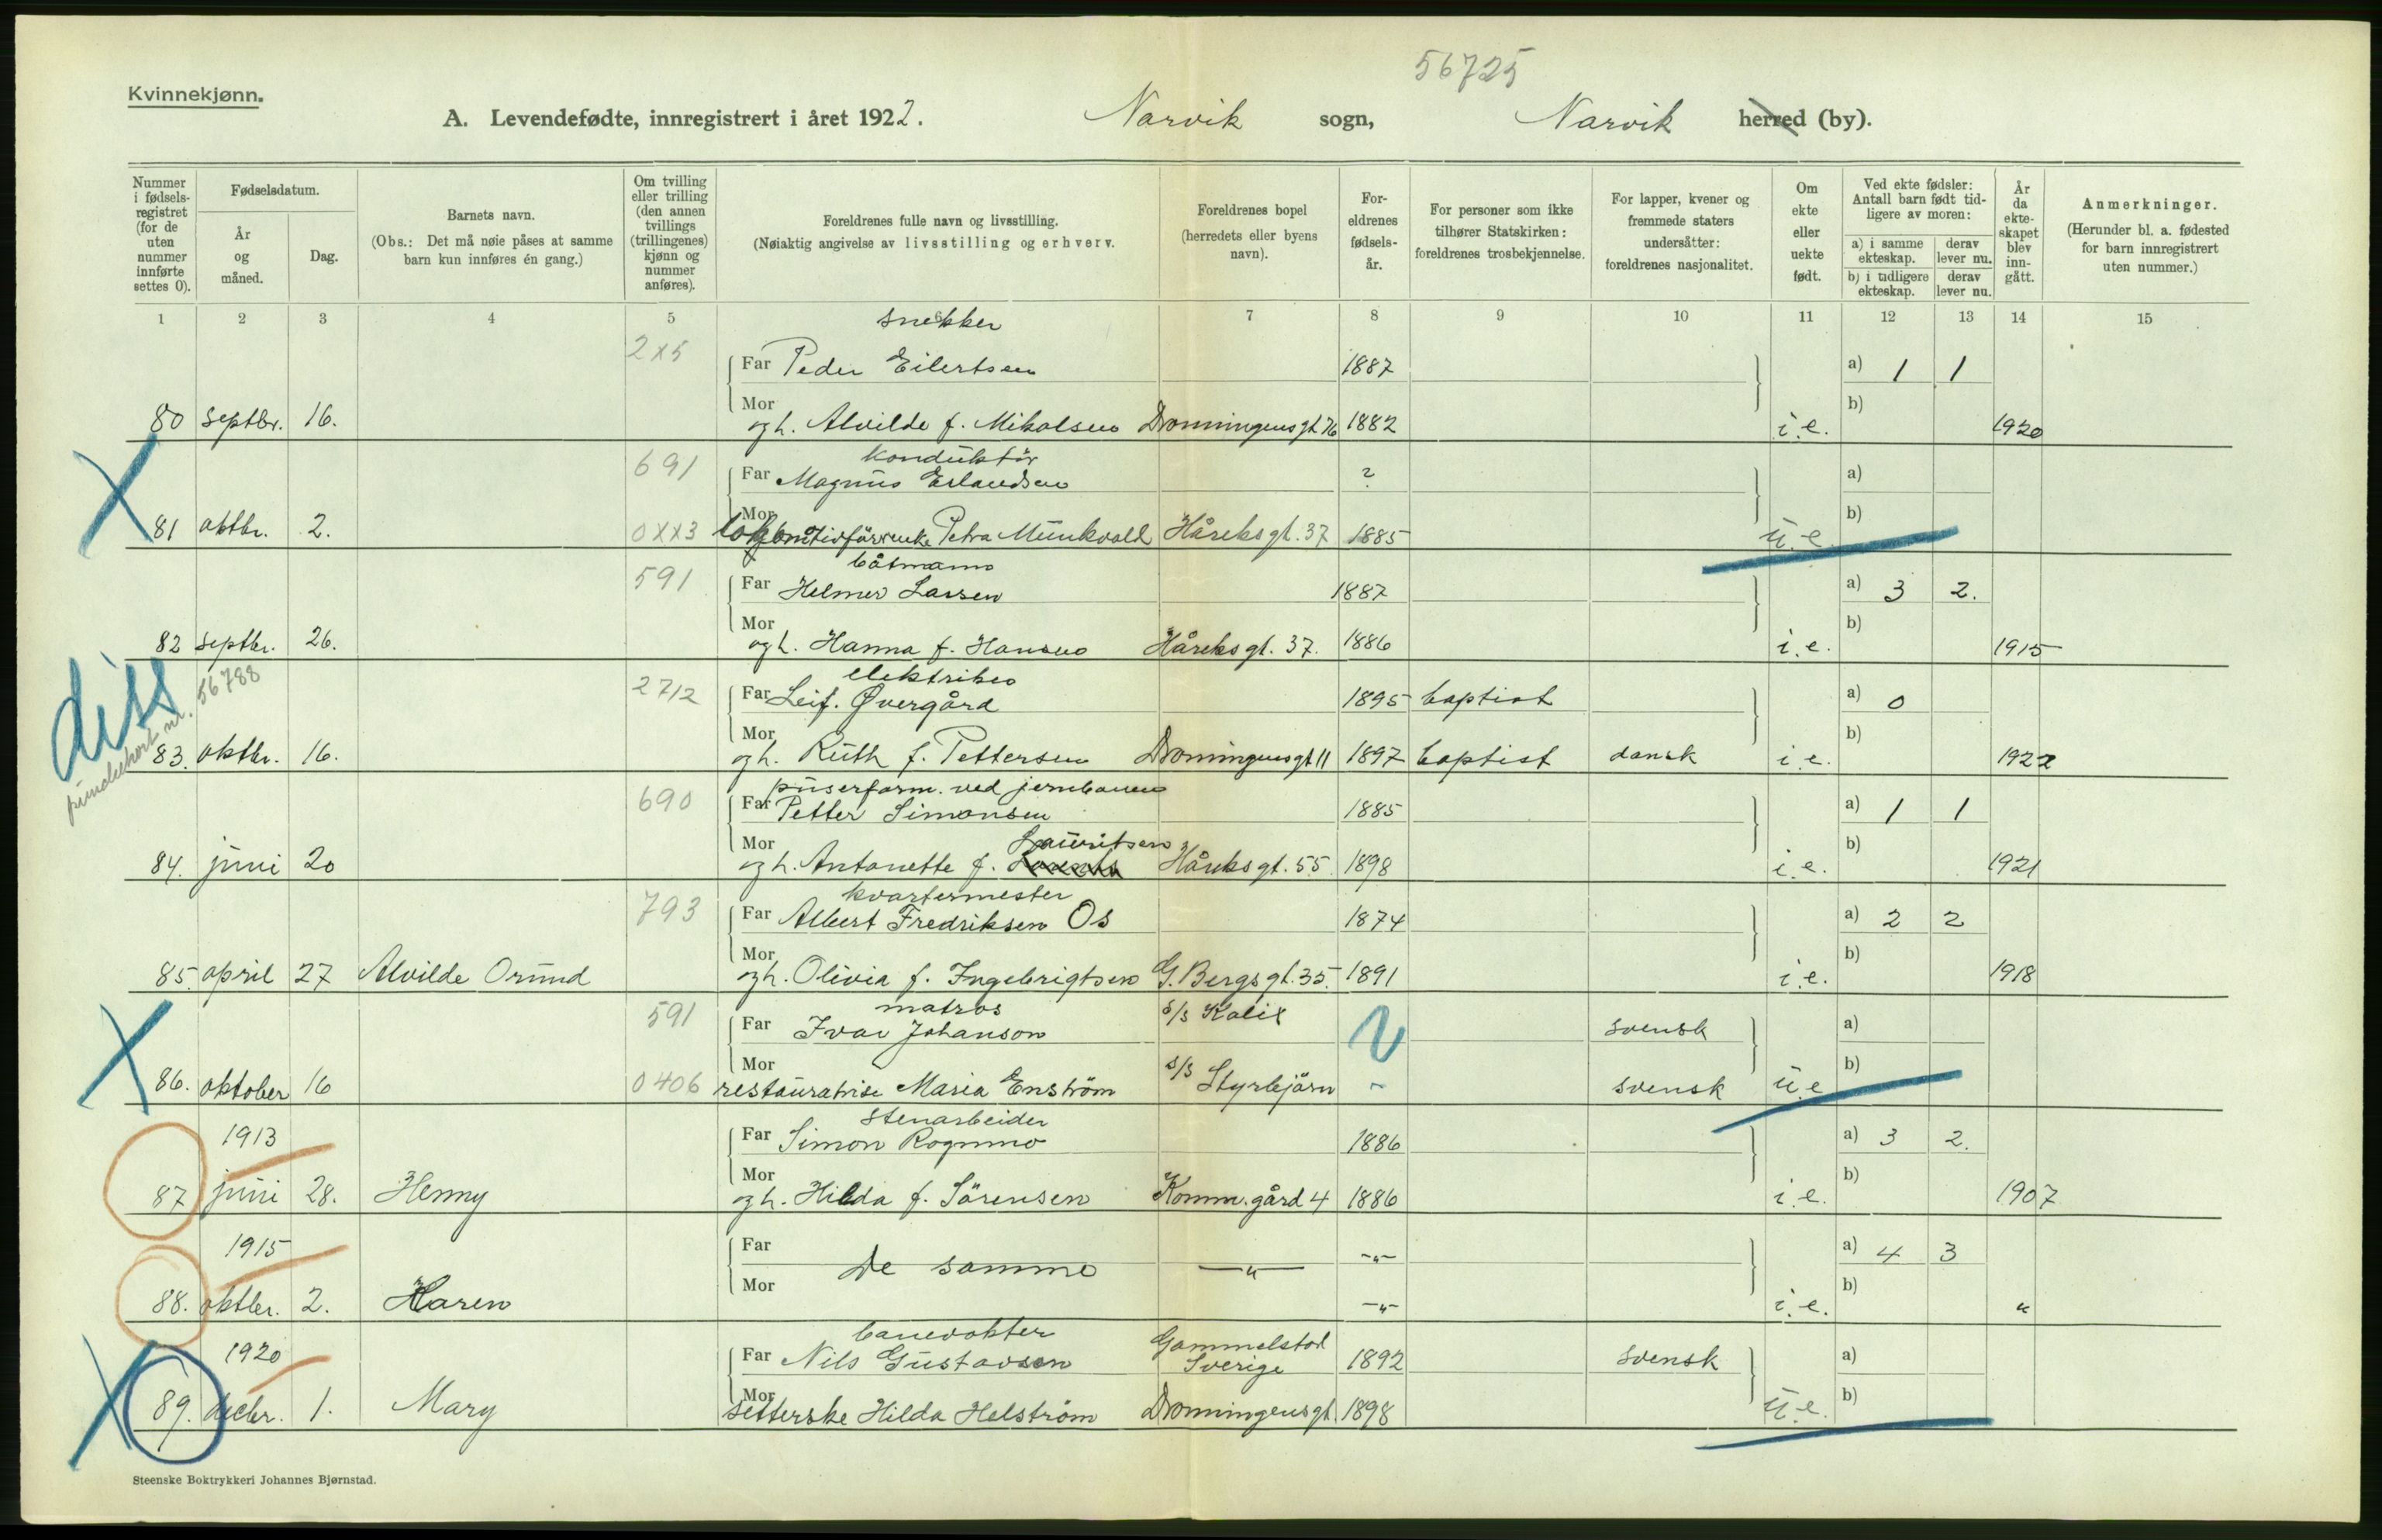 56725
Kvinnekjønn.
A. Levendefødte, innregistrert i året 1922. Narvik sogn, Narvik herred (by).
Nummer i fødselsregistret (for de uten nummer innførte settes 0).
Fødselsdatum.
År og måned.
Dag.
Barnets navn.
(Obs.: Det må nøie påses at samme barn kun innføres én gang.)
Om tvilling eller trilling (den annen tvillings (trillingenes) kjønn og nummer anføres).
Foreldrenes fulle navn og livsstilling.
(Nøiaktig angivelse av livsstilling og erhverv.
Foreldrenes bopel (herredets eller byens navn).
Foreldrenes fødselsår.
For personer som ikke tilhører Statskirken: foreldrenes trosbekjennelse.
For lapper, kvener og fremmede staters undersåtter: foreldrenes nasjonalitet.
Om ekte eller uekte født.
Ved ekte fødsler: Antall barn født tidligere av moren:
a) i samme ekteskap. derav lever nu.
b) i tidligere ekteskap. derav lever nu.
År da ekteskapet blev inngått.
Anmerkninger.
(Herunder bl. a. fødested for barn innregistrert uten nummer.)
1 2 3 4 5 6 7 8 9 10 11 12 13 14 15
snekker
2x5 Far Peder Eilertsen 1887 a) 1 1
Mor b)
80 septbr. 16. og h. Alvilde f. Mikalsen Dronningensgt 76 1882 i.e. 1920
konduktör
691 Far Magnus Erlandsen ? a)
Mor b)
81 oktbr. 2. 0xx3 Petra Munkvold Håreksgt. 37 1885 u.e.
båtmann
591 Far Helmer Larsen 1887 a) 3 2.
Mor b)
82 septbr. 26. og h. Hanna f. Hansen Håreksgt. 37. 1886 i.e. 1915
diss
56788
elektriker
2712 Far Leif. Øvergård 1895 baptist a) 0
Mor b)
83. oktbr. 16. og h. Ruth f. Pettersen Dronningensgt 11 1897 baptist dansk i.e. 1922
pusserform. ved jernbanen
690 Far Petter Simonsen 1885 a) 1 1
Mor Lauritsen b)
84. juni 20 og h. Antonette f. Håreksgt. 55. 1898 i.e. 1921
kvartermester
793 Far Albert Fredriksen Os 1874 a) 2 2
Mor b)
85. april 27 Alvilde Orund og h. Olivia f. Ingebrigtsen G. Bergsgt. 35. 1891 i.e. 1918
matros s/s Kalix
591 Far Ivar Johanson svensk a)
Mor b)
86. oktober 16 0406 restauratrise Maria Enström s/s Styrbjörn svensk u.e
stenarbeider
1913 Far Simon Rognmo 1886 a) 3 2.
Mor b)
87 juni 28. Henny og h. Hilda f. Sörensen Komm. gård 4 1886 i.e. 1907
1915 Far De samme —"— -"- a) 4 3
Mor b)
88. oktbr. 2. Karen -"- i.e. "
banevokter Gammelstad
1920 Far Nils Gustavsen Sverige 1892 svensk a)
Mor b)
89. decbr. 1. Mary Hilda Helström Dronningensgt. 1898 u.e.
Steenske Boktrykkeri Johannes Bjørnstad.